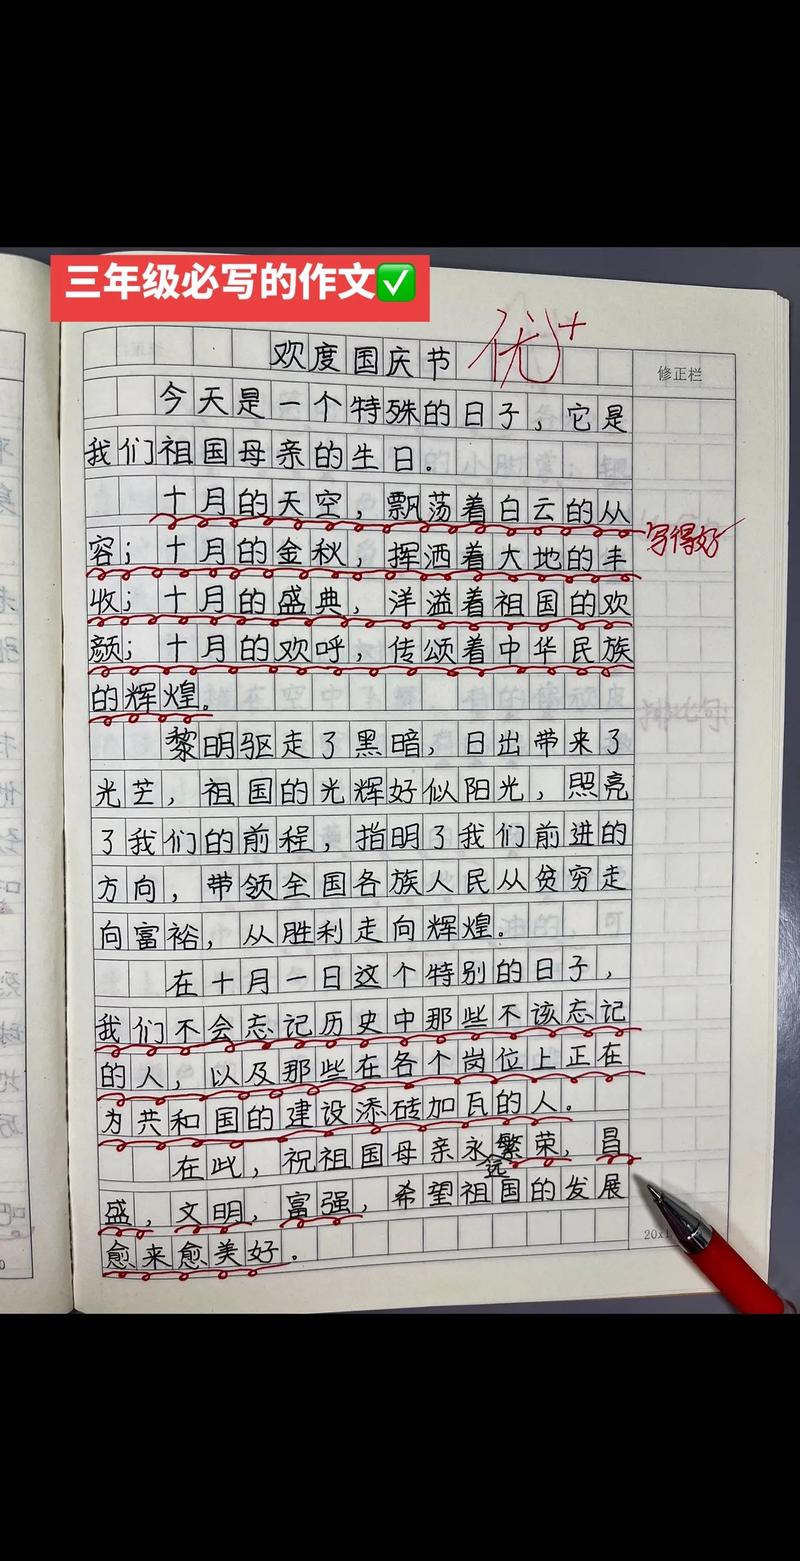 三年级必写的作文✅
优+
欢度国庆节
修正栏
今天是一个特殊的日子，它是
我们祖国母亲的生日。
十月的天空，飘荡着白云的从
容；十月的金秋，挥洒着大地的丰
写得好
收；十月的盛典，洋溢着祖国的欢
颜；十月的欢呼，传颂着中华民族
的辉煌。
黎明驱走了黑暗，日出带来了
光芒，祖国的光辉好似阳光，照亮
了我们的前程，指明了我们前进的
方向，带领全国各族人民从贫穷走
向富裕，从胜利走向辉煌。
在十月一日这个特别的日子，
我们不会忘记历史中那些不该忘记
的人，以及那些在各个岗位上正在
为共和国的建设添砖加瓦的人。
在此，祝祖国母亲永远繁荣，昌
盛，文明，富强，希望祖国的发展
愈来愈美好。